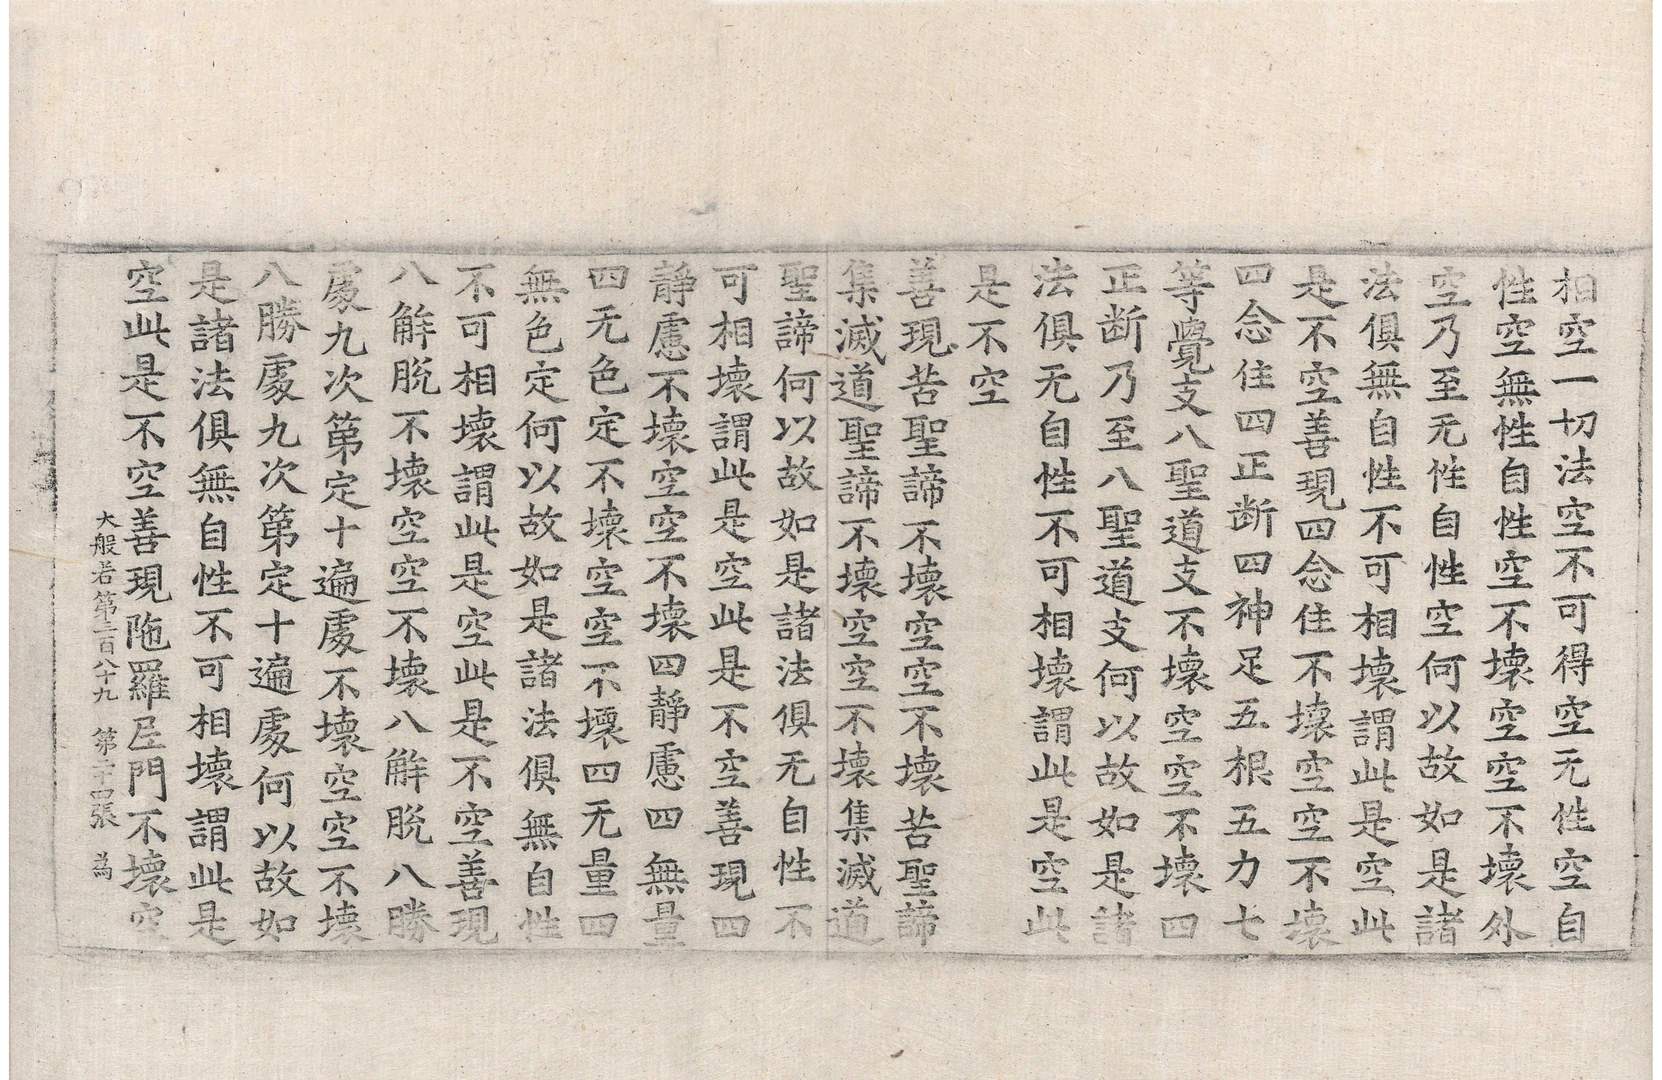 相空一切法空不可得空无性空自
性空無性自性空不壞空空不壞外
空乃至无性自性空何以故如是諸
法俱無自性不可相壞謂此是空此
是不空善現四念住不壞空空不壞
四念住四正断四神足五根五力七
等覺支八聖道支不壞空空不壞四
正断乃至八聖道支何以故如是諸
法俱无自性不可相壞謂此是空此
是不空
善現苦聖諦不壞空空不壞苦聖諦
集滅道聖諦不壞空空不壞集滅道
聖諦何以故如是諸法俱无自性不
可相壞謂此是空此是不空善現四
靜慮不壞空空不壞四靜慮四無量
四无色定不壞空空不壞四无量四
無色定何以故如是諸法俱無自性
不可相壞謂此是空此是不空善現
八解脫不壞空空不壞八解脫八勝
處九次第定十遍處不壞空空不壞
八勝處九次第定十遍處何以故如
是諸法俱無自性不可相壞謂此是
空此是不空善現陁羅尼門不壞空
大般若第二百八十九 第二十四張 為